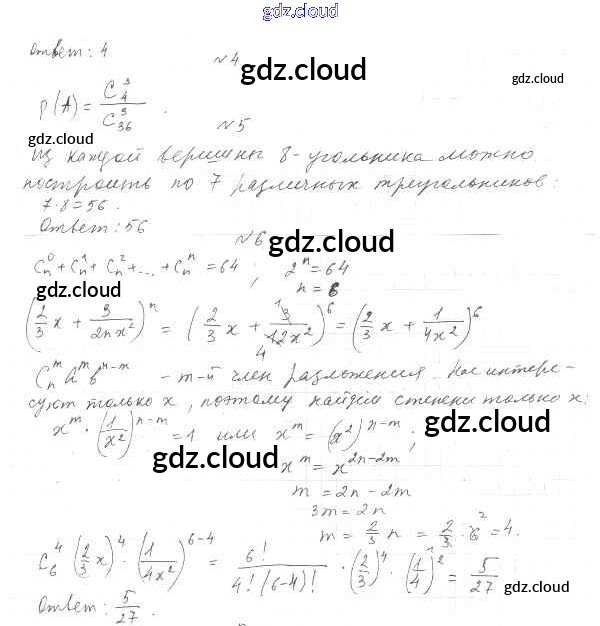 gdz.cloud
Ответ: 4
№4
gdz.cloud
gdz.cloud
P(A) = C_4^3 / C_36^3 .
gdz.cloud
№5
Из каждой вершины 8-угольника можно
построить по 7 различных треугольников:
7·8=56.
Ответ: 56
№6
gdz.cloud
C_n^0 + C_n^1 + C_n^2 + ... + C_n^n = 64 ; 2^n = 64
n = 6
gdz.cloud
(2/3 x + 3/(2nx^2))^n = (2/3 x + 3/(12x^2))^6 = (2/3 x + 1/(4x^2))^6
1
4
C_n^m a^m b^(n-m) - m-й член разложения. Нас интере-
суют только x, поэтому найдем степени только x:
x^m · (1/x^2)^(n-m) = 1 или x^m = (x^2)^(n-m) ;
gdz.cloud
gdz.cloud
x^m = x^(2n-2m)
m = 2n - 2m
3m = 2n
m = 2/3 n = 2/3 · 6^2 = 4.
C_6^4 (2/3 x)^4 · (1/(4x^2))^(6-4) = 6! / (4!(6-4)!) · (2/3)^4 · (1/4)^2 = 5/27
gdz.cloud
Ответ: 5/27 .